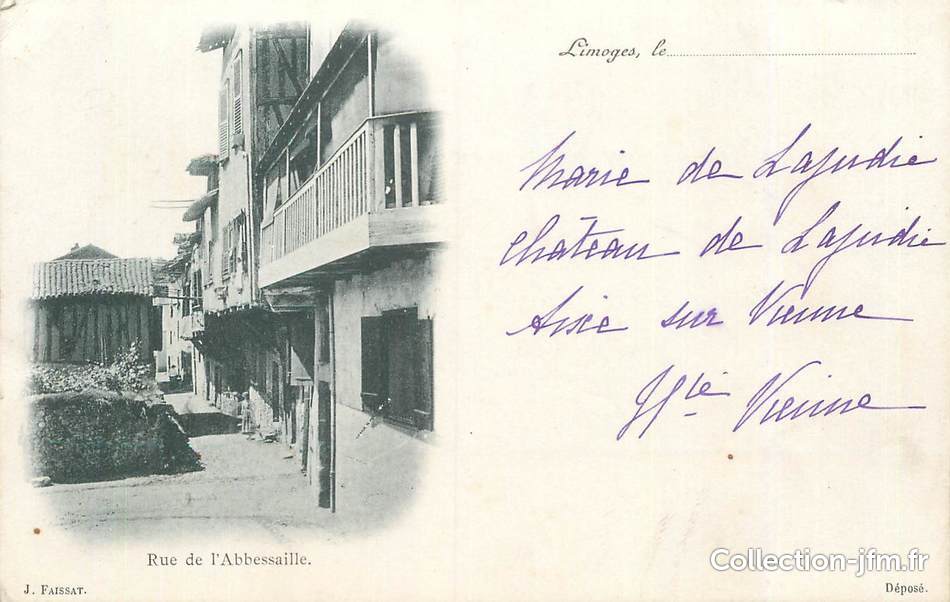 Limoges, le
Marie de Lajudie
Château de Lajudie
Aixe sur Vienne
Hte Vienne
Rue de l'Abbessaille.
J. Faissat.
Déposé.
Collection-jfm.fr